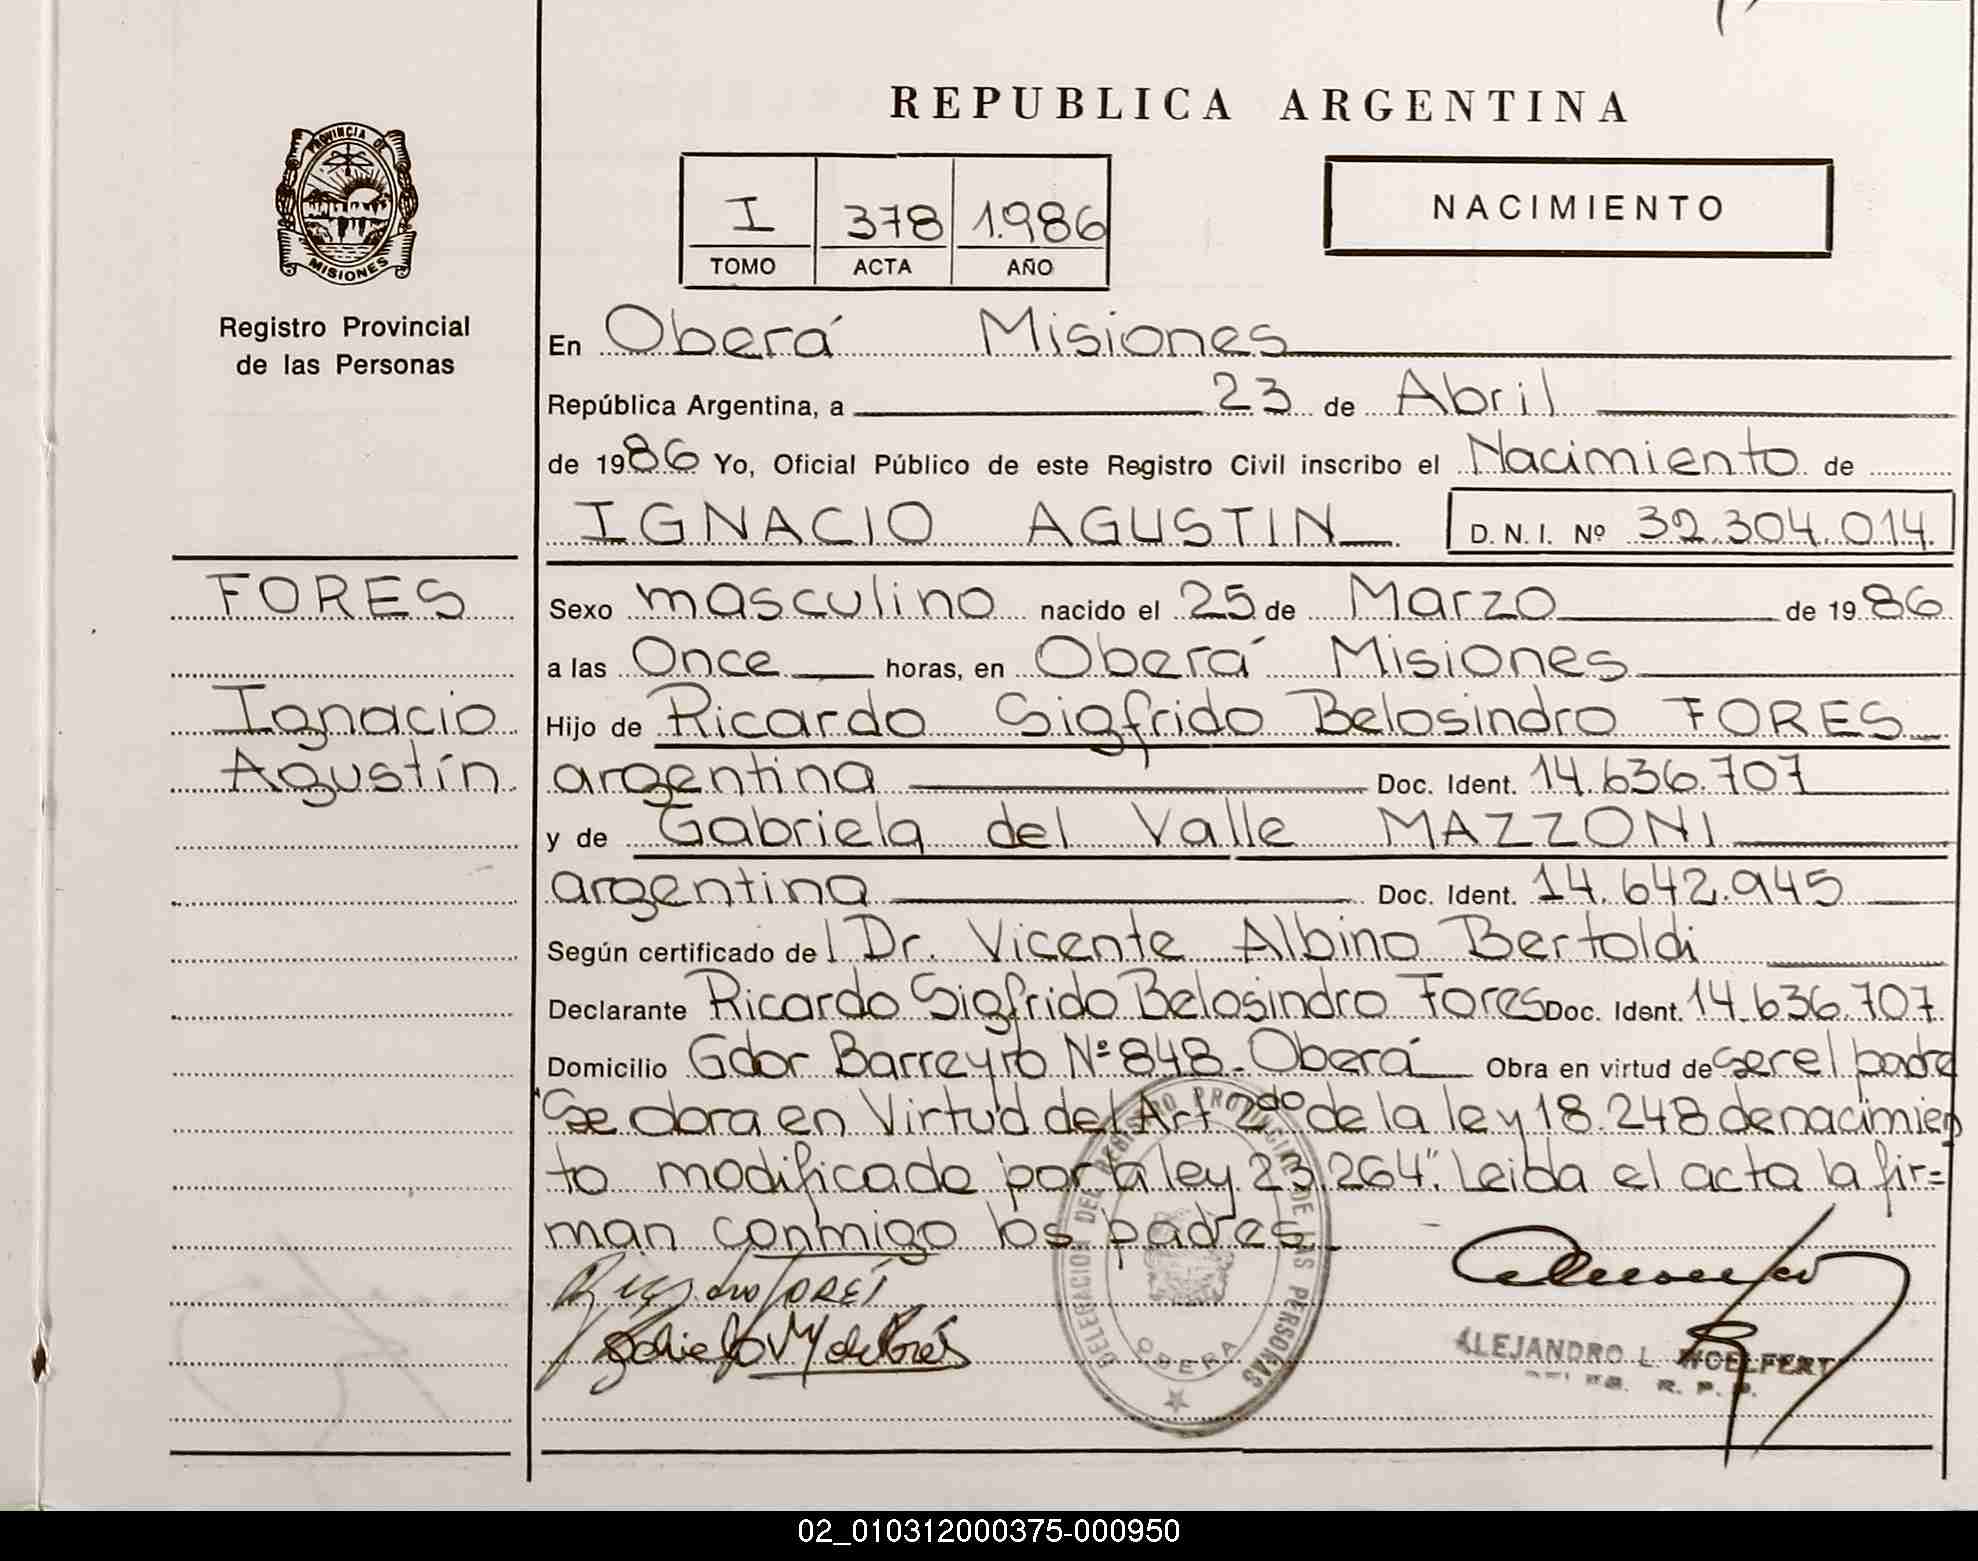 REPUBLICA ARGENTINA
PROVINCIA DE
MISIONES
I 378 1.986
TOMO ACTA AÑO
NACIMIENTO
Registro Provincial
de las Personas
En Oberá Misiones
República Argentina, a 23 de Abril
de 1986 Yo, Oficial Público de este Registro Civil inscribo el Nacimiento de
IGNACIO AGUSTIN D. N. I. Nº 32.304.014.
FORES
Ignacio
Agustín
Sexo masculino nacido el 25 de Marzo de 1986
a las Once horas, en Oberá Misiones
Hijo de Ricardo Sigfrido Belosindro FORES
argentina Doc. Ident. 14.636.707
y de Gabriela del Valle MAZZONI
argentina Doc. Ident. 14.642.945
Según certificado del Dr. Vicente Albino Bertoldi
Declarante Ricardo Sigfrido Belosindro Fores Doc. Ident. 14.636.707
Domicilio Gdor Barreyro Nº 848. Oberá Obra en virtud de ser el padre
"Se obra en Virtud del Art 2do de la ley 18.248 de nacimien
to modificado por la ley 23.264". Leida el acta la fir=
man conmigo los padres.
DELEGACION DEL REGISTRO PROVINCIAL DE LAS PERSONAS
OBERA
ALEJANDRO L. WOELFERT
R. P. P.
02_010312000375-000950